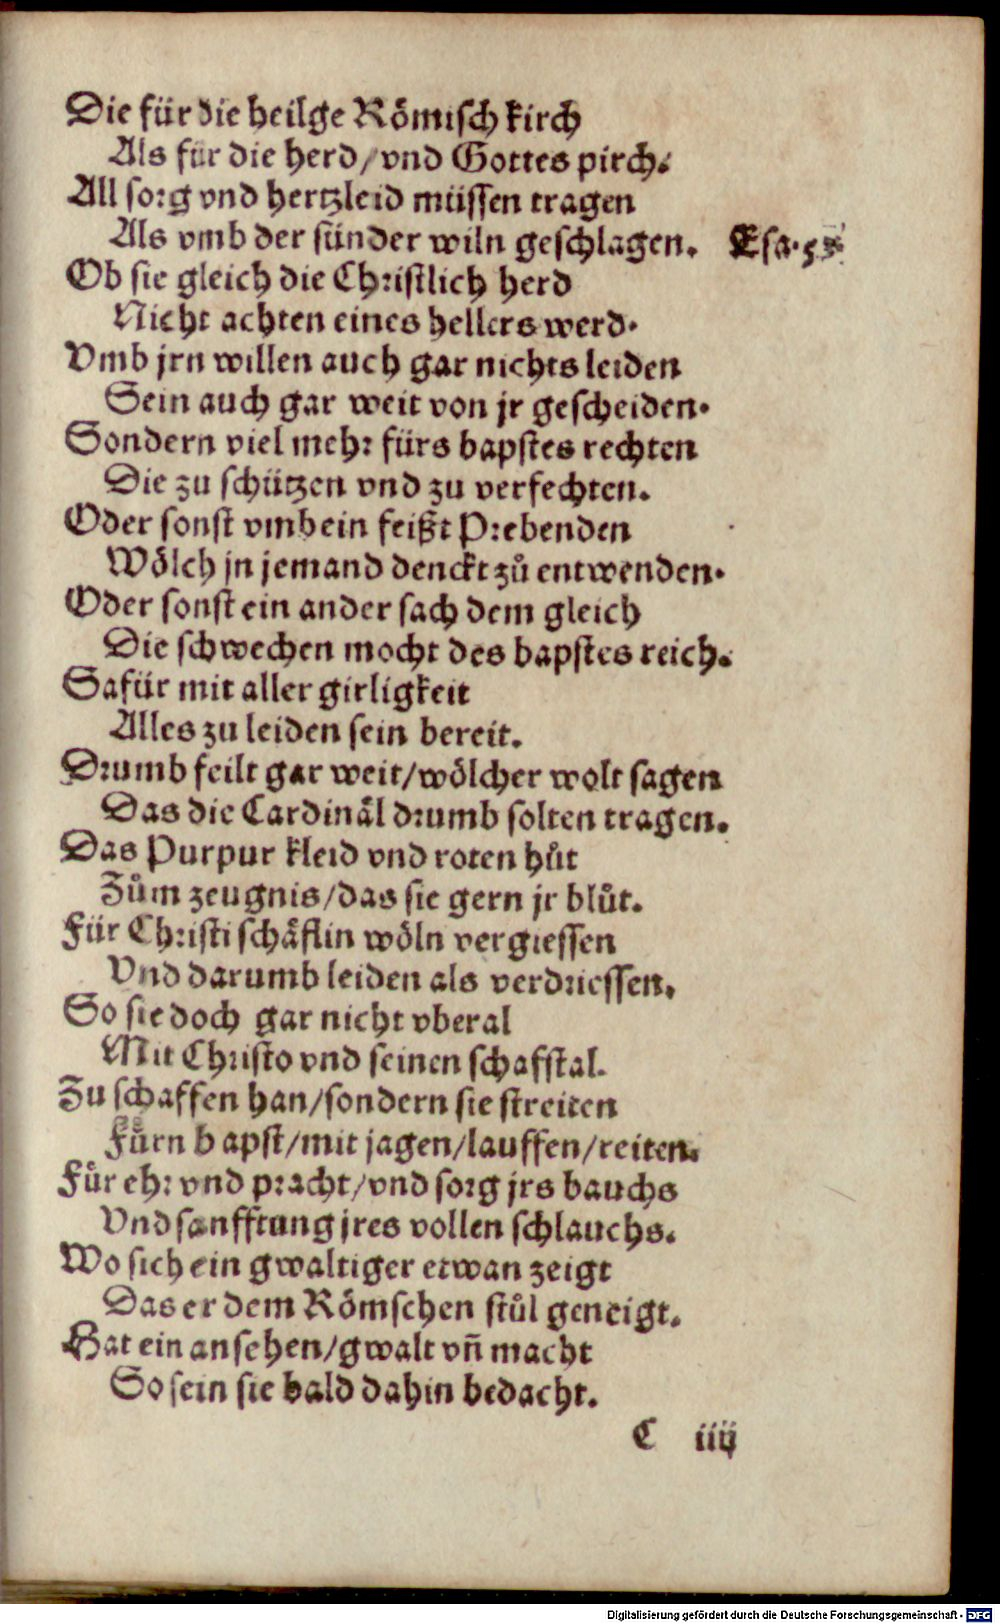 Die für die heilge Römisch kirch
Als für die herd/vnd Gottes pirch.
All sorg vnd hertzleid müssen tragen
Als vmb der sünder wiln geschlagen. Esa.53.
Ob sie gleich die Christlich herd
Nicht achten eines hellers werd.
Vmb jrn willen auch gar nichts leiden
Sein auch gar weit von jr gescheiden.
Sondern viel mehr fürs bapstes rechten
Die zu schützen vnd zu verfechten.
Oder sonst vmb ein feißt Prebenden
Wölch jn jemand denckt zů entwenden.
Oder sonst ein ander sach dem gleich
Die schwechen mocht des bapstes reich.
Safür mit aller girligkeit
Alles zu leiden sein bereit.
Drumb feilt gar weit/wölcher wolt sagen
Das die Cardinäl drumb solten tragen.
Das Purpur kleid vnd roten hůt
Zům zeugnis/das sie gern jr blůt.
Für Christi schäflin wöln vergiessen
Vnd darumb leiden als verdriessen.
So sie doch gar nicht vberal
Mit Christo vnd seinen schafstal.
Zu schaffen han/sondern sie streiten
Fürn bapst/mit jagen/lauffen/reiten.
Für ehr vnd pracht/vnd sorg jrs bauchs
Vnd sanfftung jres vollen schlauchs.
Wo sich ein gwaltiger etwan zeigt
Das er dem Römschen stůl geneigt.
Hat ein ansehen/gwalt vñ macht
So sein sie bald dahin bedacht.
C iiij
Digitalisierung gefördert durch die Deutsche Forschungsgemeinschaft - DFG